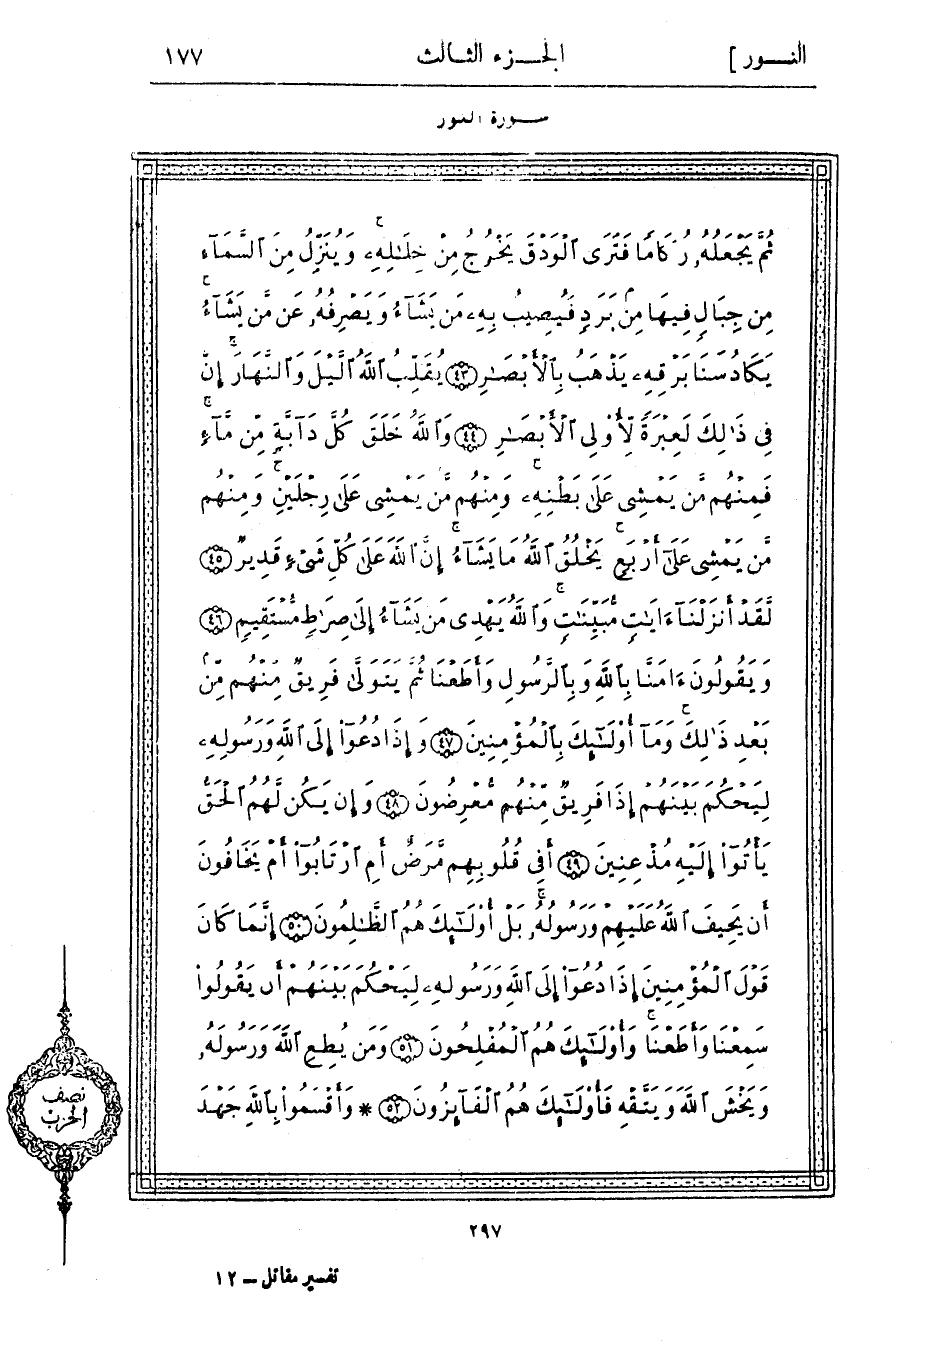 النـــور ]
الجـــزء الثالث
١٧٧
ســورة النور
ثُمَّ يَجْعَلُهُۥ رُكَامًا فَتَرَى ٱلْوَدْقَ يَخْرُجُ مِنْ خِلَـٰلِهِۦۖ وَيُنَزِّلُ مِنَ ٱلسَّمَآءِ
مِن جِبَالٍ فِيهَا مِنۢ بَرَدٍ فَيُصِيبُ بِهِۦ مَن يَشَآءُ وَيَصْرِفُهُۥ عَن مَّن يَشَآءُۖ
يَكَادُ سَنَا بَرْقِهِۦ يَذْهَبُ بِٱلْأَبْصَـٰرِ ﴿٤٣﴾ يُقَلِّبُ ٱللَّهُ ٱلَّيْلَ وَٱلنَّهَارَۚ إِنَّ
فِى ذَٰلِكَ لَعِبْرَةً لِّأُو۟لِى ٱلْأَبْصَـٰرِ ﴿٤٤﴾ وَٱللَّهُ خَلَقَ كُلَّ دَآبَّةٍ مِّن مَّآءٍۖ
فَمِنْهُم مَّن يَمْشِى عَلَىٰ بَطْنِهِۦ وَمِنْهُم مَّن يَمْشِى عَلَىٰ رِجْلَيْنِ وَمِنْهُم
مَّن يَمْشِى عَلَىٰٓ أَرْبَعٍۚ يَخْلُقُ ٱللَّهُ مَا يَشَآءُۚ إِنَّ ٱللَّهَ عَلَىٰ كُلِّ شَىْءٍ قَدِيرٌ ﴿٤٥﴾
لَّقَدْ أَنزَلْنَآ ءَايَـٰتٍ مُّبَيِّنَـٰتٍۚ وَٱللَّهُ يَهْدِى مَن يَشَآءُ إِلَىٰ صِرَٰطٍ مُّسْتَقِيمٍ ﴿٤٦﴾
وَيَقُولُونَ ءَامَنَّا بِٱللَّهِ وَبِٱلرَّسُولِ وَأَطَعْنَا ثُمَّ يَتَوَلَّىٰ فَرِيقٌ مِّنْهُم مِّنۢ
بَعْدِ ذَٰلِكَۚ وَمَآ أُو۟لَـٰٓئِكَ بِٱلْمُؤْمِنِينَ ﴿٤٧﴾ وَإِذَا دُعُوٓا۟ إِلَى ٱللَّهِ وَرَسُولِهِۦ
لِيَحْكُمَ بَيْنَهُمْ إِذَا فَرِيقٌ مِّنْهُم مُّعْرِضُونَ ﴿٤٨﴾ وَإِن يَكُن لَّهُمُ ٱلْحَقُّ
يَأْتُوٓا۟ إِلَيْهِ مُذْعِنِينَ ﴿٤٩﴾ أَفِى قُلُوبِهِم مَّرَضٌ أَمِ ٱرْتَابُوٓا۟ أَمْ يَخَافُونَ
أَن يَحِيفَ ٱللَّهُ عَلَيْهِمْ وَرَسُولُهُۥۚ بَلْ أُو۟لَـٰٓئِكَ هُمُ ٱلظَّـٰلِمُونَ ﴿٥٠﴾ إِنَّمَا كَانَ
قَوْلَ ٱلْمُؤْمِنِينَ إِذَا دُعُوٓا۟ إِلَى ٱللَّهِ وَرَسُولِهِۦ لِيَحْكُمَ بَيْنَهُمْ أَن يَقُولُوا۟
سَمِعْنَا وَأَطَعْنَاۚ وَأُو۟لَـٰٓئِكَ هُمُ ٱلْمُفْلِحُونَ ﴿٥١﴾ وَمَن يُطِعِ ٱللَّهَ وَرَسُولَهُۥ
وَيَخْشَ ٱللَّهَ وَيَتَّقْهِ فَأُو۟لَـٰٓئِكَ هُمُ ٱلْفَآئِزُونَ ﴿٥٢﴾ * وَأَقْسَمُوا۟ بِٱللَّهِ جَهْدَ
نصف
الحزب
٢٩٧
تفسير مقاتل ــ ١٢